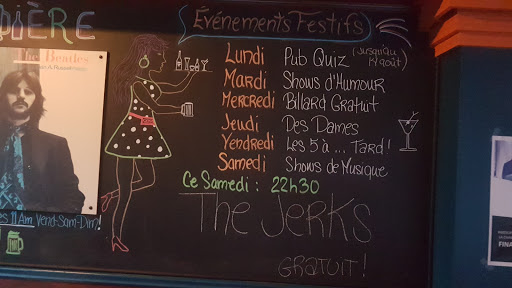 DIÈRE
Événements Festifs
Lundi Pub Quiz (Jusqu'au
1er août)
Mardi Shows d'Humour
Mercredi Billard Gratuit
Jeudi Des Dames
Vendredi Les 5 à ... Tard!
Samedi Shows de Musique
Ce Samedi : 22h30
The Jerks
Gratuit!
The Beatles
11 Am Vend-Sam-Dim!
FINA